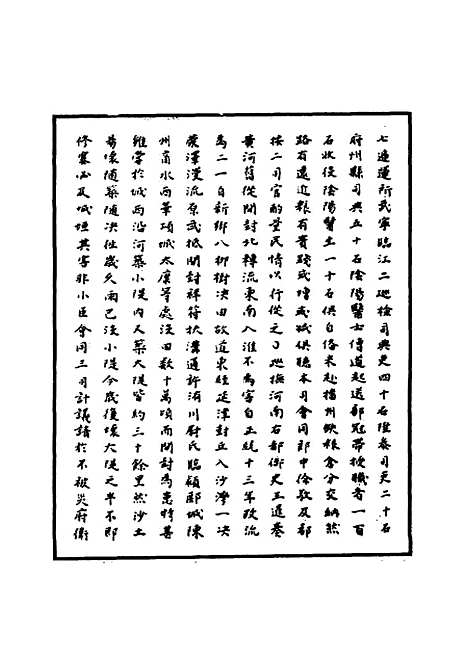 七遞運所武寧臨江二巡檢司典吏四十石陸叅司吏二十石
府州縣司典五十石陰陽醫士僧道起送部冠帶授職者一百
石收役陰陽醫生一十石俱自俻米赴播州缺粮倉分交納然
路有遠近粮有貴賤或增或減俱聽本司會同部申俻敎及部
按二司官酌量民情以行從之○巡撫河南右都御史王暹奏
黃河舊從開封北轉流東南入淮不為害自正統十三年改流
為二一自新鄉八柳樹決由故道東經延津封丘入沙灣一決
滎澤漫流原武抵開封祥符扶溝通許洧川尉氏臨潁郾城陳
州商水西華項城太康等處沒田數十萬頃而開封為患特甚
雖嘗於城西沿河築小隄內又築大隄皆約三十餘里然沙土
易壞隨築隨決往歲久雨已沒小隄今歲復壞大隄之半不即
修塞必及城垣其害非小臣會同三司計議請於不被災府衛